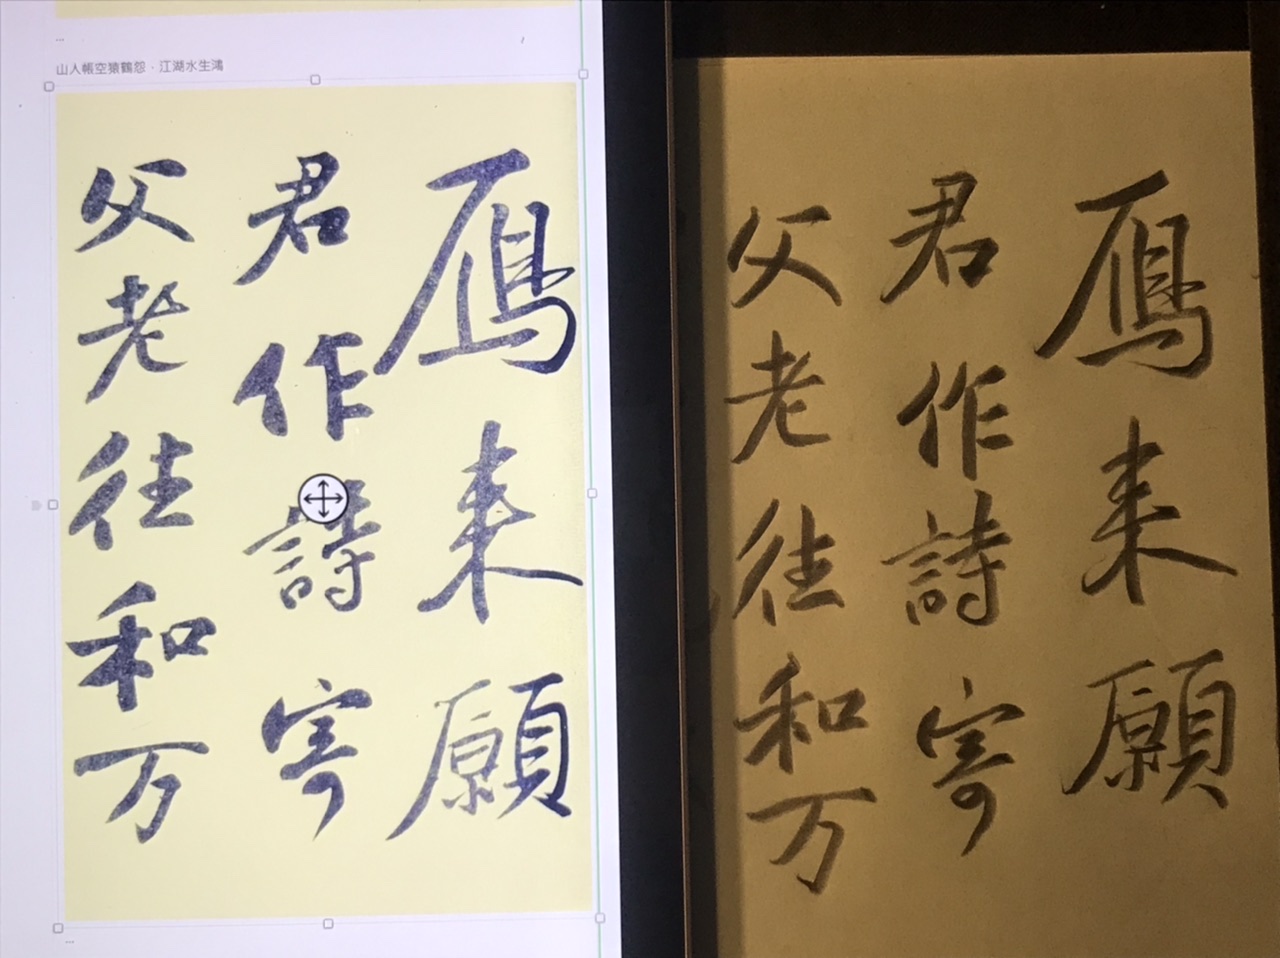 山人帳空猿鶴怨．江湖水生鴻
鴈来願
君作詩寄
父老往和万
鴈来願
君作詩寄
父老往和万